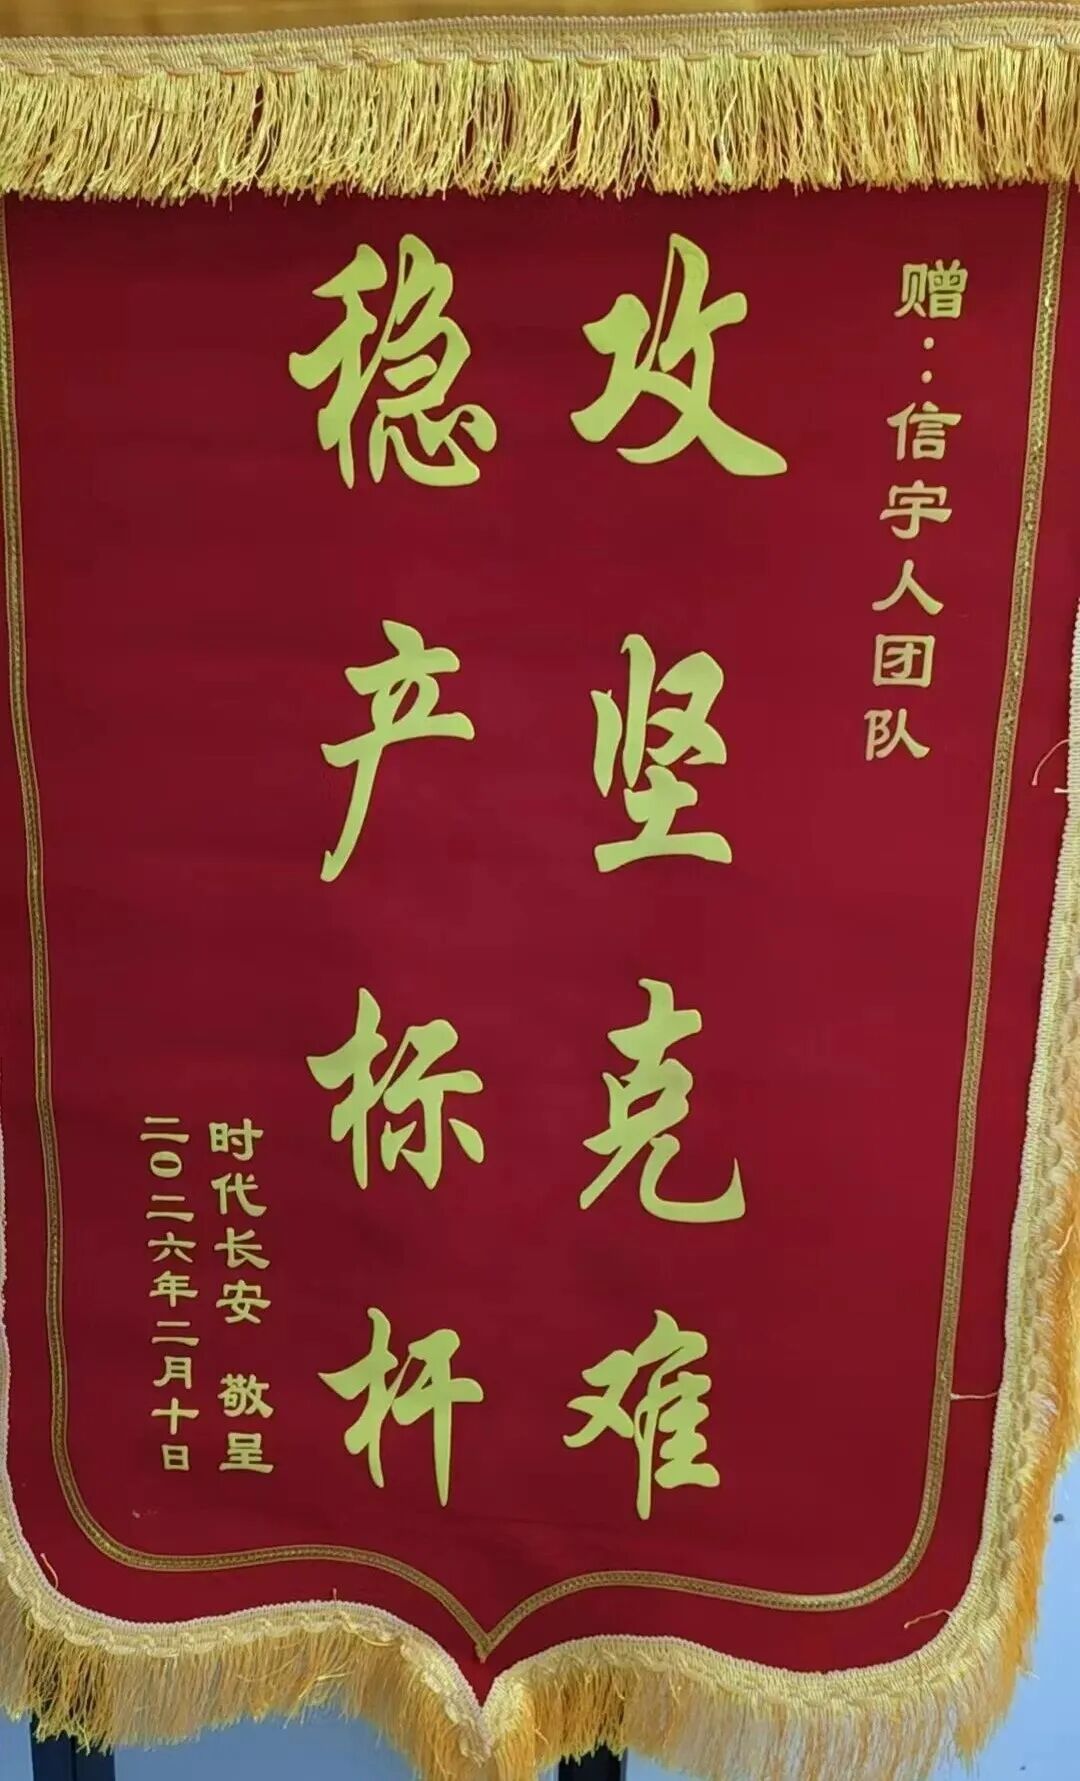 赠：信宇人团队
攻坚克难
稳产标杆
时代长安 敬呈
二〇二六年二月十日